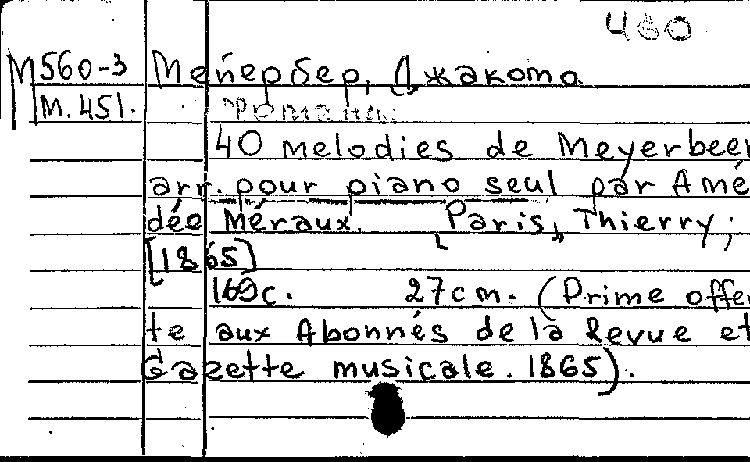 460
М560-3 Мейербер, Джакомо
М.451. Романы
40 melodies de Meyerbeer
arr. pour piano seul par Amé
dée Méraux. [Paris], Thierry;
[1865]
169с. 27cm. (Prime offer
te aux Abonnés de la Revue et
Gazette musicale. 1865).